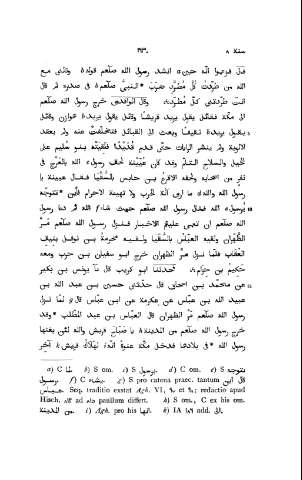 سنة ٨ ١٦٣٠
قال فزعموا انه حين a انشد رسول الله صلعم قوله b ونلنى مع
الله من طرّدت كلّ مطرّد ضرب c النبى صلعم فى صدره ثم قال
انت طرّدتنى كلّ مطرّد، وقال الواقدى خرج رسول الله صلعم
الى مكة فقائل يقول يريد قريشا وقائل يقول يريد هوازن وقائل
يقول يريد ثقيفا وبعث الى القبائل فتخلّفت عنه ولم يعقد
الالوية ولم ينشر الرايات حتى قدم قديدا فلقيته بنو سليم على
الخيل والسلاح التامّ وقد كان عيينة لحق رسول الله بالعرج فى
نفر من اصحابه ولحقه الاقرع بن حابس بالسقيا فقال عيينة يا
رسول الله والله ما ارى آلة الحرب ولا تهيئة الاحرام فأين تتوجّه
يا رسول الله فقال رسول الله صلعم حيث شاء الله ثم دعا رسول
الله صلعم ان تعمى عليهم الاخبار فنزل رسول الله صلعم مرّ
الظهران ولقيه العباس بالسقيا ولقيه مخرمة بن نوفل بنيق
العقاب فلما نزل مرّ الظهران خرج ابو سفيان بن حرب ومعه
حكيم بن حزام، فحدثنا ابو كريب قال نا يونس بن بكير
عن محمد بن اسحاق قال حدثنى حسين بن عبد الله بن
عبيد الله بن عباس عن عكرمة عن ابن عباس قال لما نزل
رسول الله صلعم مرّ الظهران قال العباس بن عبد المطلب وقد
خرج رسول الله صلعم من المدينة يا صباح قريش والله لئن بغتها
رسول الله فى بلادها فدخل مكة عنوة انه لهلاك قريش آخر
a) C لما. b) S om. c) S
d) C om. e) S
f) C
g) S pro catena praec. tantum
Seq. traditio exstat Agh. VI,
redactio apud
Hisch. paullum differt. h) S om., C ex his om.
من المدينة. i) Agh. pro his انها. k) IA add. الى.